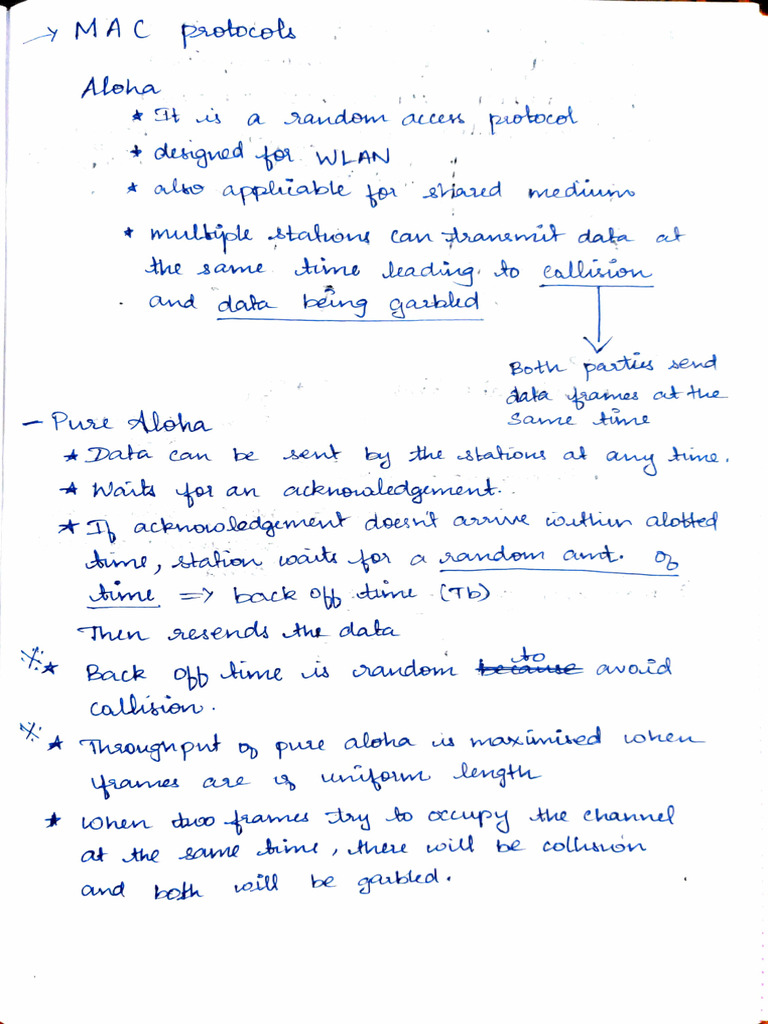 → MAC protocols
Aloha
* It is a random access protocol
* designed for WLAN
* also applicable for shared medium
* multiple stations can transmit data at
the same time leading to callision
and data being garbled
Both parties send
data frames at the
same time
- Pure Aloha
* Data can be sent by the stations at any time.
* Waits for an acknowledgement.
* If acknowledgement doesn't arrive within alotted
time, station waits for a random amt. of
time => back off time (Tb)
Then resends the data
* Back off time is random because to avoid
callision.
* Throughput of pure aloha is maximised when
frames are of uniform length
* When two frames try to occupy the channel
at the same time, there will be collision
and both will be garbled.